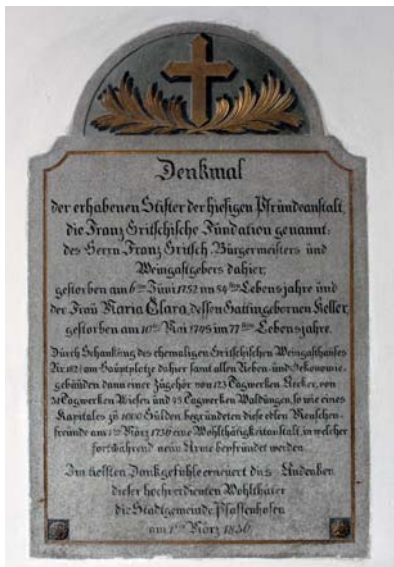 Denkmal
der erhabenen Stifter der hiesigen Pfründeanstalt,
die Franz Gritschische Fundation genannt:
des Herrn Franz Gritsch, Bürgermeisters und
Weingastgebers dahier,
gestorben am 6ten Juni 1752 im 54sten Lebensjahre und
der Frau Maria Clara, dessen Gattin gebornen Keller,
gestorben am 10ten Mai 1795 im 77sten Lebensjahre.
Durch Schankung des ehemaligen Gritschischen Weingasthauses
am Hauptplatze dahier samt allen Neben- und Oekonomie-
gebäuden dann einer Zugehör von 123 Tagwerken Aecker, von
31 Tagwerken Wiesen und 45 Tagwerken Waldungen, so wie eines
Kapitales zu Gulden begründeten diese edlen Menschen-
freunde am 1ten März 1756 eine Wohlthätigkeitanstalt, in welcher
fortwährend neun Arme bepfründet werden.
Im tiefsten Dankgefühle erneuert das Andenken
dieser hochverdienten Wohlthäter
die Stadtgemeinde Pfaffenhofen
am 1ten März 1856